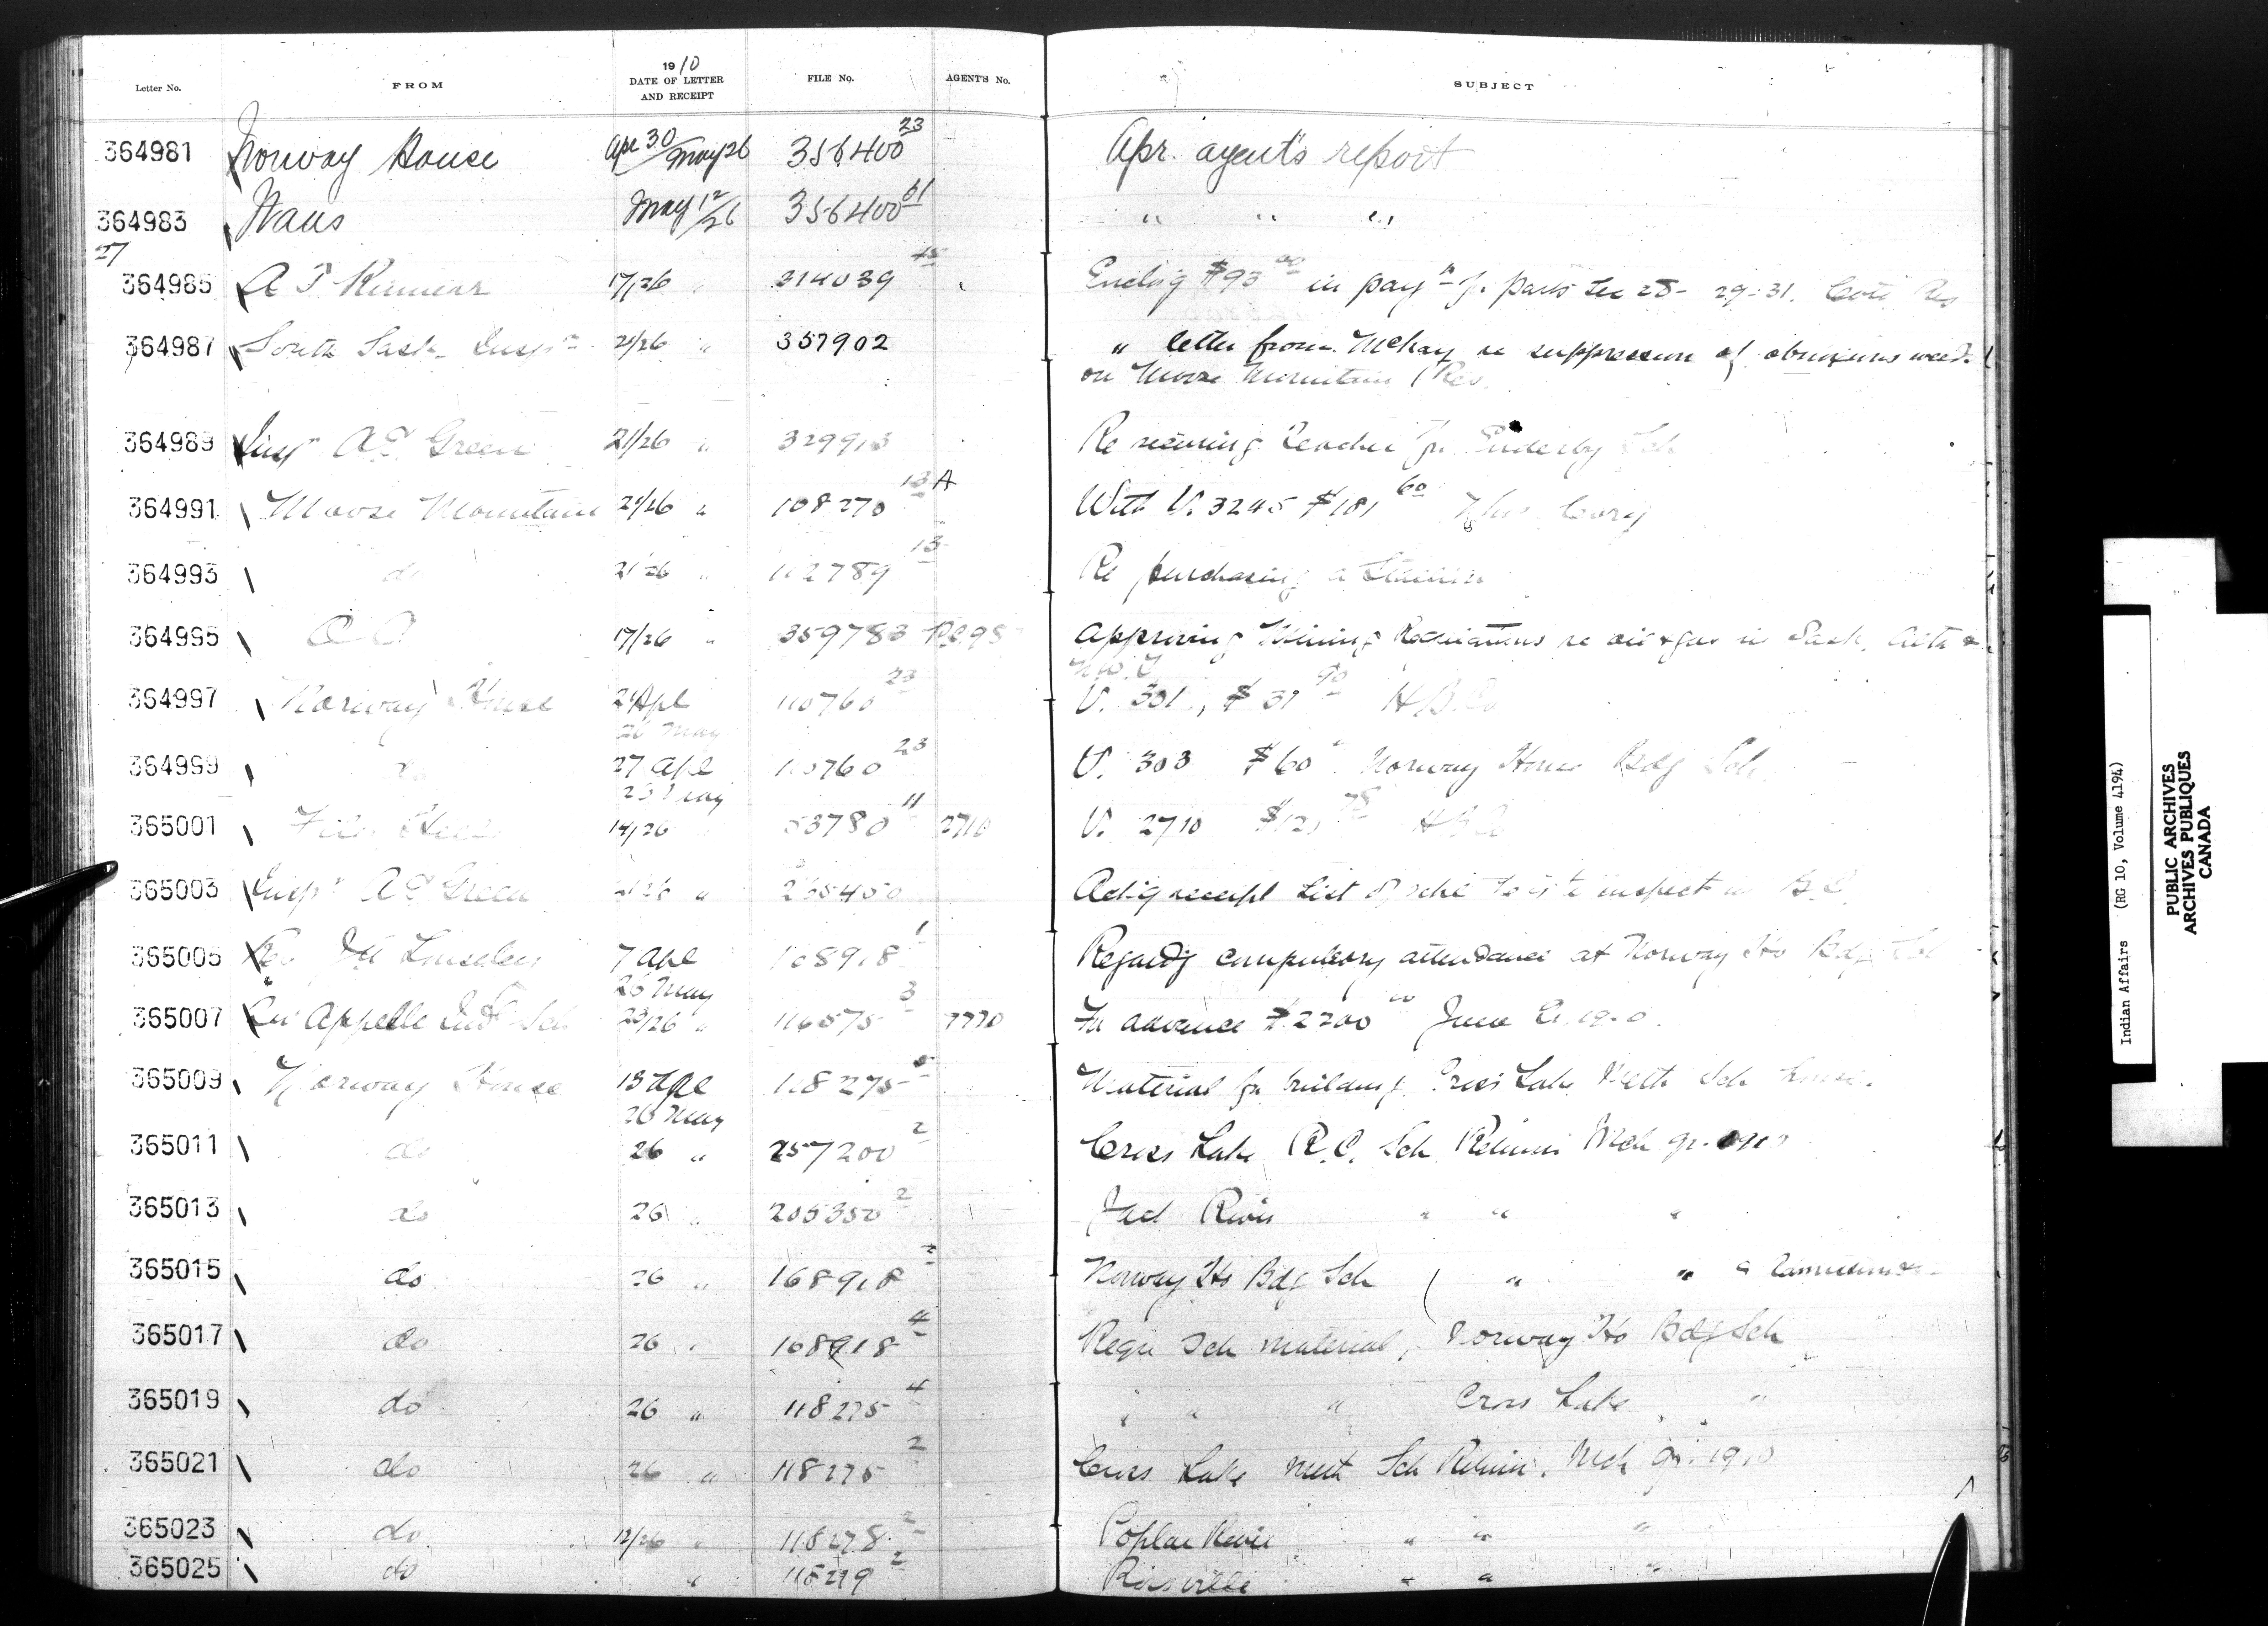 Letter No. FROM 1910 DATE OF LETTER AND RECEIPT FILE No. AGENT'S No. SUBJECT
364981 Norway House Apr 30/May 26 356400 23 Apr. agent's report
364983 May 12/26 356400 61 " " "
27
364985 17/26 " 314039 Enclog $93 00 in payt for parts Sec 28-29-31. Cote Res
364987 South Sask. Inspr 21/26 " 357902 " letter from McKay re suppression of weeds
on Moose Mountain Res.
364989 Insp A E Green 21/26 " 329913 Re securing teacher for Enderby Sch
364991 Moose Mountain 21/26 " 108270 13 A With V. 3245 $181 60 Cory
364993 do 21/26 " 102789 13 Re purchasing a
364995 O C 17/26 " 359783 P.C. 987 Approving Mining Regulations re oil & gas in Sask. Alta &
N.W.T.
364997 Norway House 21 Apl 110760 23 V. 301, $37 90 H B Co
26 May
364999 do 27 Apl 110760 23 V. 303 $60 Norway House Bdg Sch
26 May
365001 File Hills 14/26 " 63780 11 2710 V. 2710 H B Co
365003 Inspr A E Green 21/26 " 265450 Ackg receipt list of schs to inspect in B.C.
365005 Rev 7 Apl 168918 1 Regardg compulsory attendance at Norway Ho Bdg Sch
26 May
365007 Qu'Appelle Indl Sch 23/26 " 116575 3 7770 For advance $2200 00 June
365009 Norway House 13 Apl 118275 Material for building Cross Lake Meth Sch house.
26 May
365011 do 26 " 257200 2 Cross Lake R.C. Sch Returns Mch qr. 1910
365013 do 26 " 205350 2 Jack River " " "
365015 do 26 " 168918 2 Norway Ho Bdg Sch ( " " &
365017 do 26 " 168918 4 Requ Sch material, Norway Ho Bdg Sch
365019 do 26 " 118275 4 " " " Cross Lake "
365021 do 26 " 118275 2 Cross Lake Meth Sch Return. Mch qr. 1910
365023 do 12/26 " 118278 2 Poplar River " " "
365025 do " 118279 2 Rossville " " "
Indian Affairs (RG 10, Volume 4194)
PUBLIC ARCHIVES
ARCHIVES PUBLIQUES
CANADA